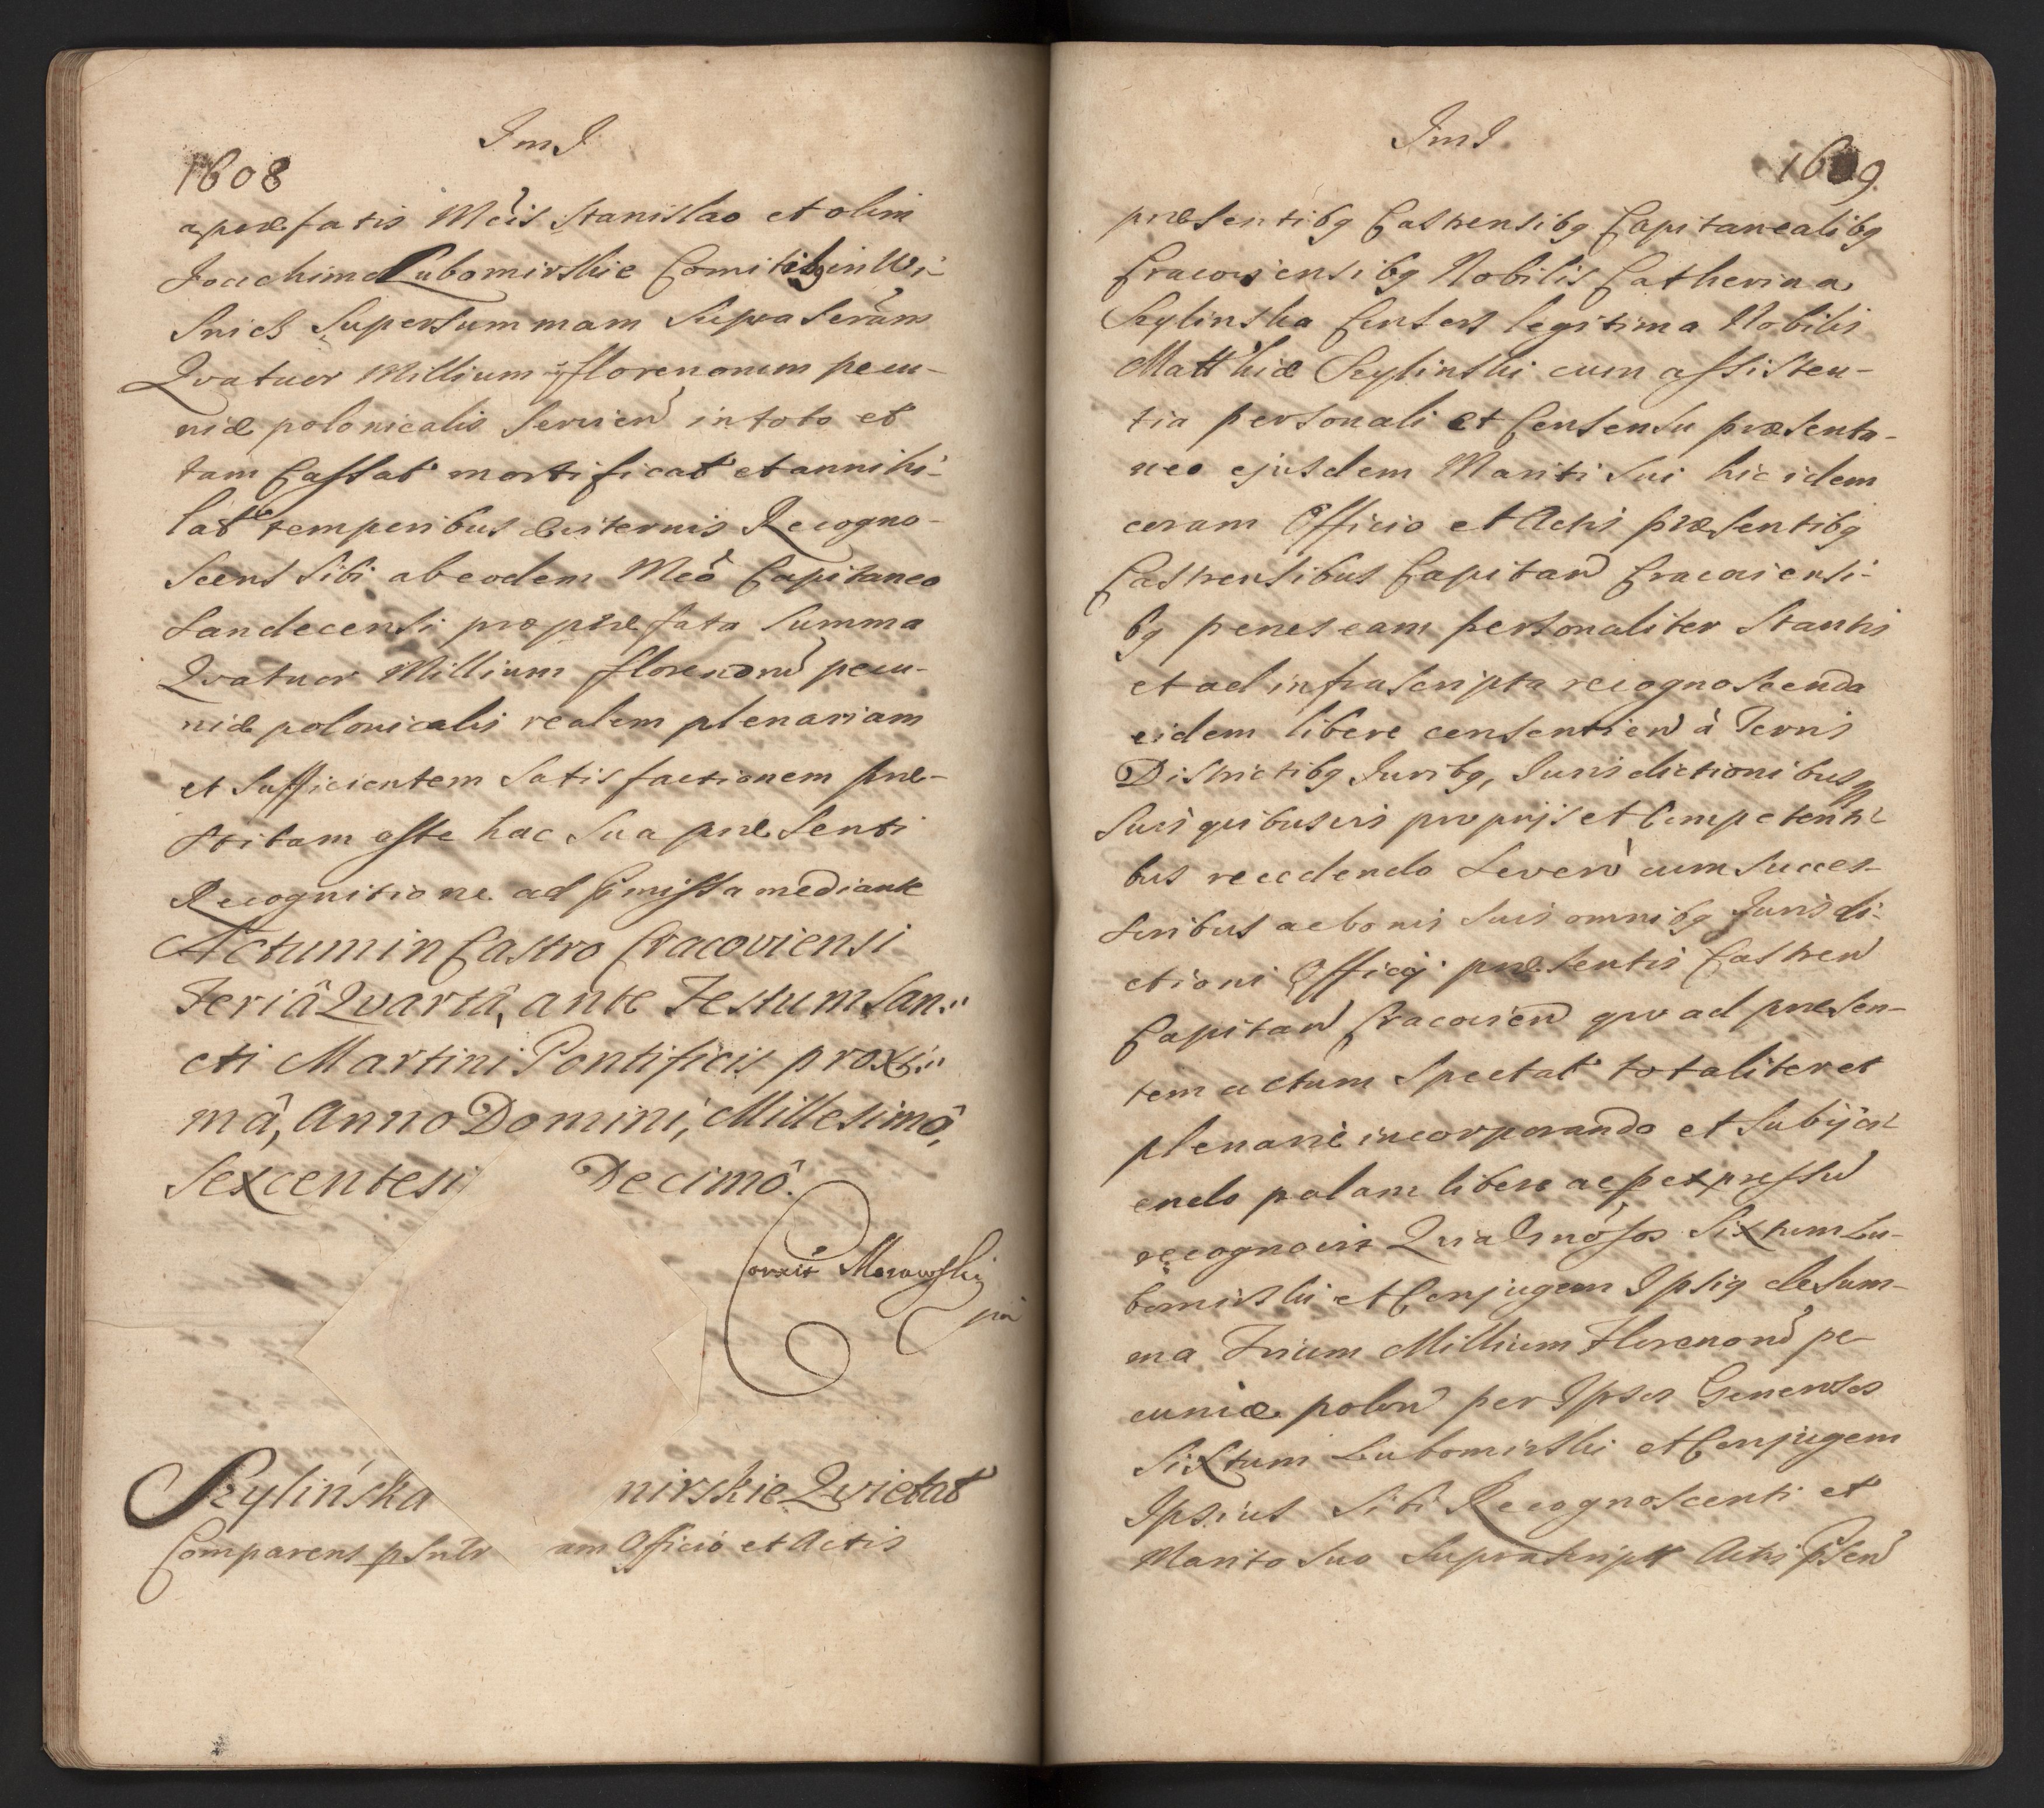 ImI
1608
a præfatis Mcis Stanislao et olim
Joachimo Lubomirskie Comitibg in Wi-
snicz super summam supra scram
Qvatuor Millium florenorum pecu-
niæ polonicalis servien in toto et
tam Cassat mortificat et annihi-
lat temporibus æviternis Recogno-
scens sibi ab eodem Mco Capitaneo
Sandecensi pro præfata summa
Qvatuor Millium florenoru pecu-
niæ polonicalis realem plenariam
et sufficientem satisfactionem præ-
stitam esse hac sua præsenti
Recognitione ad pmissa mediante
Actum in Castro Cracoviensi
Feriâ Qvartâ, ante Festum San:
cti Martini Pontificis proxi:
mâ, Anno Domini, Millesimô,
Sexcentesi Decimô.
Morawski
Szylińska nirskie Qvietat
Comparens psnlr am Officio et Actis
ImI
1609
præsentibg Castrensibg Capitanealibg
Cracoviensibg Nobilis Catherina
Szylinska Consors legitima Nobilis
Matthiæ Szylinski cum assisten-
tia personali et Consensu præsenta-
neo ejusdem Mariti sui hic idem
coram Officio et Actis præsentibg
Castrensibus Capitan Cracoviensi-
bg penes eam personaliter stantis
et ad infrascripta recognoscenda
eidem libere consentien à Terris
Districtibg Juribg, Jurisdictionibusq
suis qvibusvis proprijs et Competenti
bus recedendo Seqve cum succes-
soribus ac bonis suis omnibg Jurisdi-
ctioni Officij præsentis Castren
Capitan Cracovien qvo ad præsen-
tem actum spectat totaliter et
plenarie incorporando et subijci
endo palam libere ac p expressu
recognovit Qvia Gnosos Sixtum Lu-
bomirski et Conjugem Ipsig de sum-
ma Trium Millium Florenoru pe-
cuniæ polon per Ipsos Generosos
Sixtum Lubomirski et Conjugem
Ipsius sibi Recognoscenti et
Marito suo suprascript Actis psen